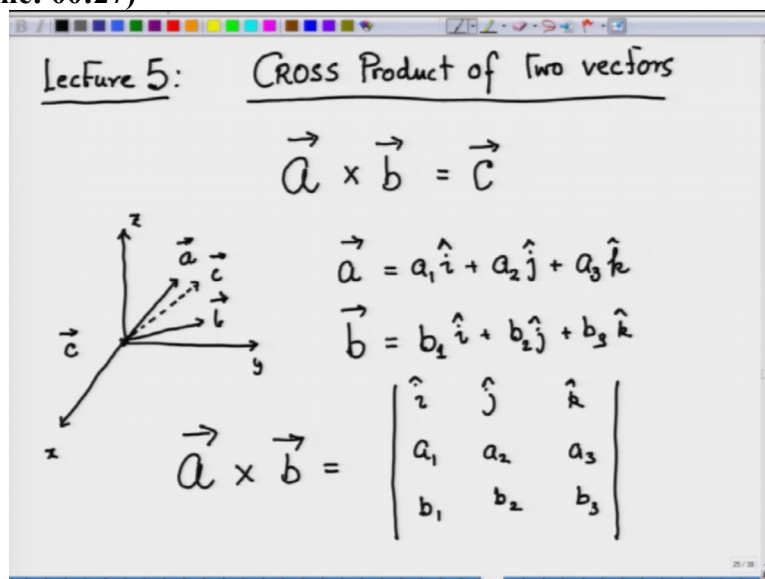 ne: 00:27)
Lecture 5: CROSS Product of Two vectors
a⃗ × b⃗ = c⃗
z
a⃗
c⃗
b⃗
c⃗
y
x
a⃗ = a₁î + a₂ĵ + a₃k̂
b⃗ = b₁î + b₂ĵ + b₃k̂
a⃗ × b⃗ =
| î ĵ k̂ |
| a₁ a₂ a₃ |
| b₁ b₂ b₃ |
25 / 38